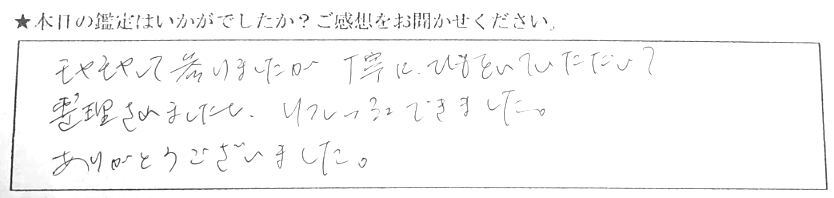 ★本日の鑑定はいかがでしたか？ご感想をお聞かせください。
モヤモヤして参りましたが 丁寧に、ひもといていただいて
整理されましたし、リフレッシュできました。
ありがとうございました。